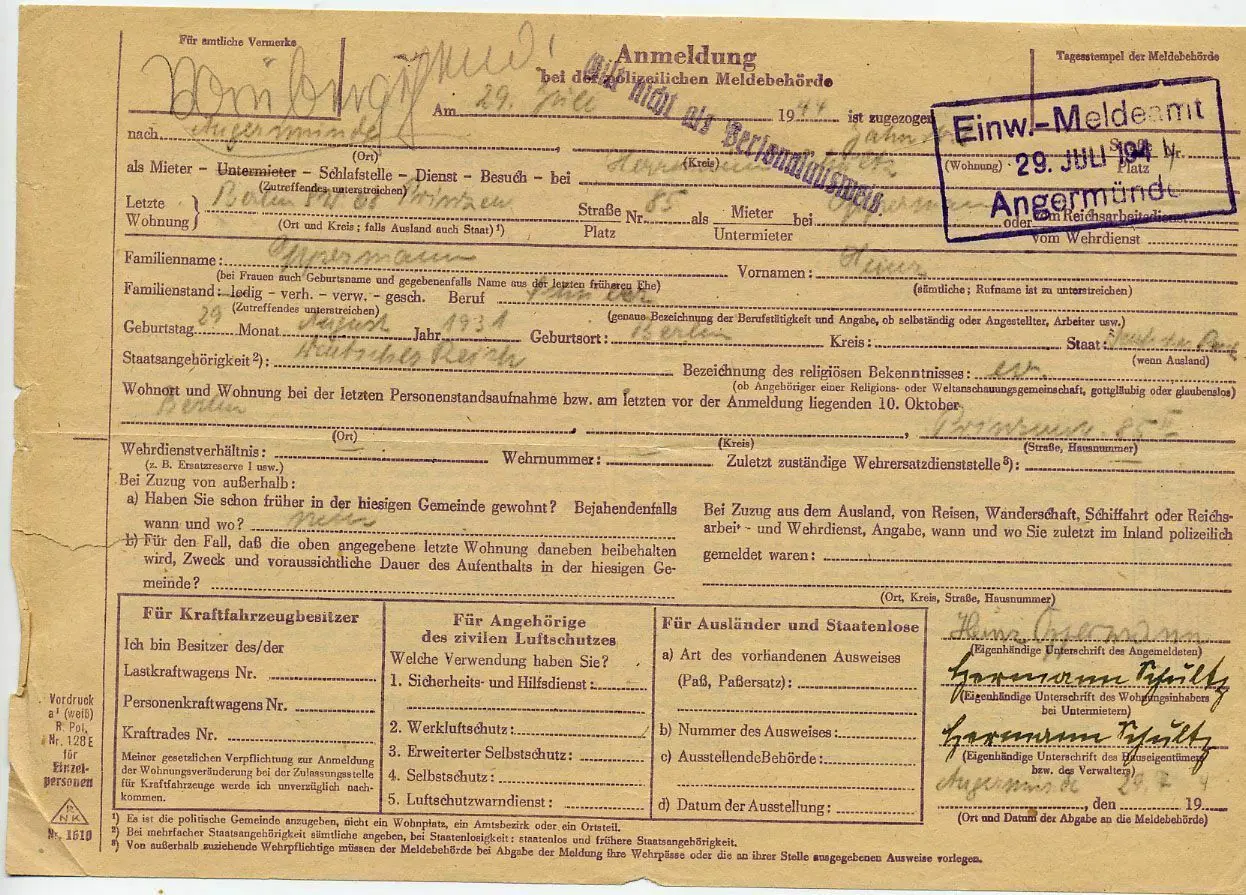 Für amtliche Vermerke
Anmeldung
bei der polizeilichen Meldebehörde
Tagesstempel der Meldebehörde
Gilt nicht als Personalausweis.
Einw.-Meldeamt
29. JULI 1944
Angermünde
Am 29. Juli 1944 ist zugezogen
nach Angermünde
(Ort) (Kreis) (Wohnung) Platz Nr.
als Mieter - Untermieter - Schlafstelle - Dienst - Besuch - bei Herrmann
(Zutreffendes unterstreichen)
Letzte Wohnung } Berlin SW 68 Prinzen Straße Platz Nr. 85 als Mieter Untermieter bei Oppermann oder im Reichsarbeitsdienst
(Ort und Kreis; falls Ausland auch Staat) ¹) vom Wehrdienst
Familienname: Oppermann Vornamen: Heinz
(bei Frauen auch Geburtsname und gegebenenfalls Name aus der letzten früheren Ehe) (sämtliche; Rufname ist zu unterstreichen)
Familienstand: ledig - verh. - verw. - gesch. Beruf Schüler
(Zutreffendes unterstreichen) (genaue Bezeichnung der Berufstätigkeit und Angabe, ob selbständig oder Angestellter, Arbeiter usw.)
Geburtstag 29 Monat August Jahr 1931 Geburtsort: Berlin Kreis: Staat:
(wenn Ausland)
Staatsangehörigkeit ²): Deutsches Reich Bezeichnung des religiösen Bekenntnisses: ev.
(ob Angehöriger einer Religions- oder Weltanschauungsgemeinschaft, gottgläubig oder glaubenslos)
Wohnort und Wohnung bei der letzten Personenstandsaufnahme bzw. am letzten vor der Anmeldung liegenden 10. Oktober
Berlin Prinzenstr. 85 II
(Ort) (Kreis) (Straße, Hausnummer)
Wehrdienstverhältnis: Wehrnummer: Zuletzt zuständige Wehrersatzdienststelle ³):
(z. B. Ersatzreserve I usw.)
Bei Zuzug von außerhalb:
a) Haben Sie schon früher in der hiesigen Gemeinde gewohnt? Bejahendenfalls
wann und wo? nein
b) Für den Fall, daß die oben angegebene letzte Wohnung daneben beibehalten
wird, Zweck und voraussichtliche Dauer des Aufenthalts in der hiesigen Ge-
meinde?
Bei Zuzug aus dem Ausland, von Reisen, Wanderschaft, Schiffahrt oder Reichs-
arbeit- und Wehrdienst, Angabe, wann und wo Sie zuletzt im Inland polizeilich
gemeldet waren:
(Ort, Kreis, Straße, Hausnummer)
Für Kraftfahrzeugbesitzer
Ich bin Besitzer des/der
Lastkraftwagens Nr.
Personenkraftwagens Nr.
Kraftrades Nr.
Meiner gesetzlichen Verpflichtung zur Anmeldung
der Wohnungsveränderung bei der Zulassungsstelle
für Kraftfahrzeuge werde ich unverzüglich nach-
kommen.
Für Angehörige
des zivilen Luftschutzes
Welche Verwendung haben Sie?
1. Sicherheits- und Hilfsdienst:
2. Werkluftschutz:
3. Erweiterter Selbstschutz:
4. Selbstschutz:
5. Luftschutzwarndienst:
Für Ausländer und Staatenlose
a) Art des vorhandenen Ausweises
(Paß, Paßersatz):
b) Nummer des Ausweises:
c) Ausstellende Behörde:
d) Datum der Ausstellung:
Heinz Oppermann
(Eigenhändige Unterschrift des Angemeldeten)
Hermann Schultz
(Eigenhändige Unterschrift des Wohnungsinhabers
bei Untermietern)
Hermann Schultz
(Eigenhändige Unterschrift des Hauseigentümers
bzw. des Verwalters)
Angermünde, den 29. 7. 19 4
(Ort und Datum der Abgabe an die Meldebehörde)
Vordruck
a¹ (weiß)
R. Pol.
Nr. 128 E
für
Einzel-
personen
RNK
Nr. 1610
¹) Es ist die politische Gemeinde anzugeben, nicht ein Wohnplatz, ein Amtsbezirk oder ein Ortsteil.
²) Bei mehrfacher Staatsangehörigkeit sämtliche angeben, bei Staatenlosigkeit: staatenlos und frühere Staatsangehörigkeit.
³) Von außerhalb zuziehende Wehrpflichtige müssen der Meldebehörde bei Abgabe der Meldung ihre Wehrpässe oder die an ihrer Stelle ausgegebenen Ausweise vorlegen.